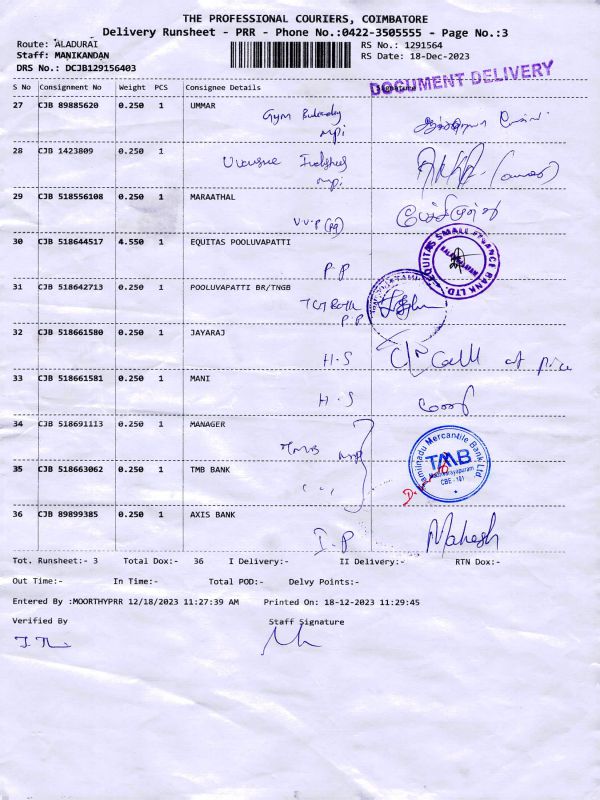 THE PROFESSIONAL COURIERS, COIMBATORE
Delivery Runsheet - PRR - Phone No.:0422-3505555 - Page No.:3
Route: ALADURAI
Staff: MANIKANDAN
DRS No.: DCJB129156403
RS No.: 1291564
RS Date: 18-Dec-2023
DOCUMENT DELIVERY
S No Consignment No Weight PCS Consignee Details Signature
27 CJB 89885620 0.250 1 UMMAR
Gym
mpi
28 CJB 1423809 0.250 1
mpi
29 CJB 518556108 0.250 1 MARAATHAL
V.V.P
30 CJB 518644517 4.550 1 EQUITAS POOLUVAPATTI
P.P
EQUITAS SMALL FINANCE BANK LTD.
31 CJB 518642713 0.250 1 POOLUVAPATTI BR/TNGB
P.P
32 CJB 518661580 0.250 1 JAYARAJ
H.S
33 CJB 518661581 0.250 1 MANI
H.S
34 CJB 518691113 0.250 1 MANAGER
TMB
Tamilnadu Mercantile Bank Ltd
TMB
CBE - 101
35 CJB 518663062 0.250 1 TMB BANK
36 CJB 89899385 0.250 1 AXIS BANK
I.P Mahesh
Tot. Runsheet:- 3 Total Dox:- 36 I Delivery:- II Delivery:- RTN Dox:-
Out Time:- In Time:- Total POD:- Delvy Points:-
Entered By :MOORTHYPRR 12/18/2023 11:27:39 AM Printed On: 18-12-2023 11:29:45
Verified By Staff Signature